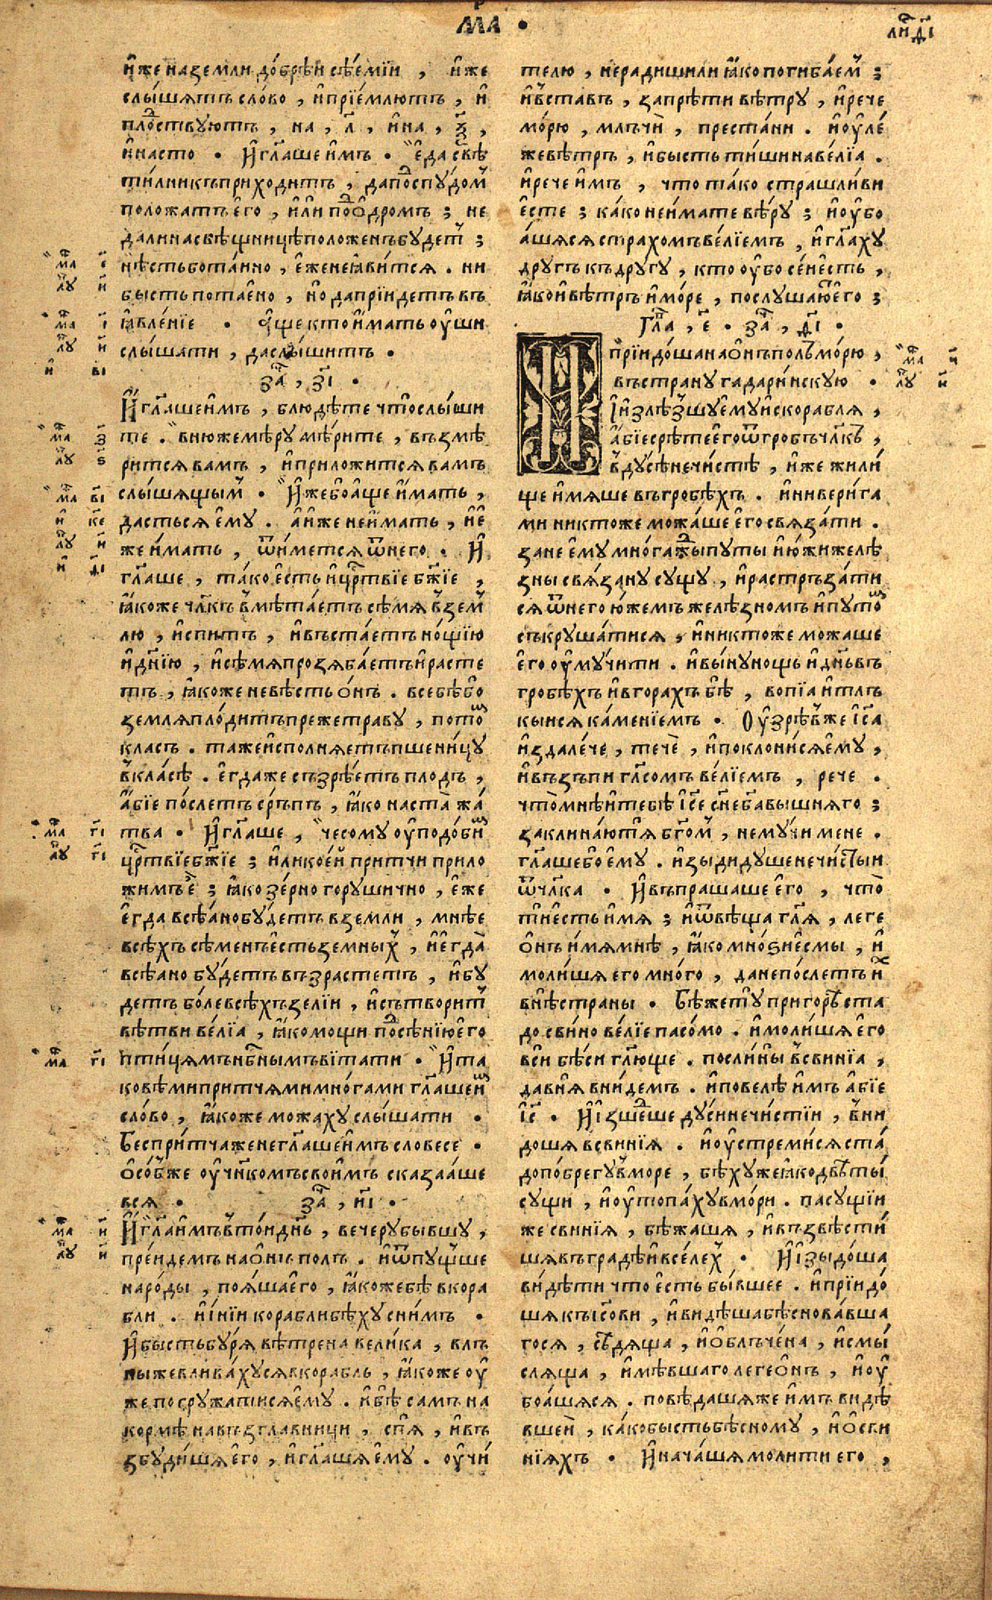 мар •
лиⷭ҇ д҃і
и҆́же наземли до́брѣи сѣ́емїи , и҆́же
слы́шятъ сло́во , и҆прїе́млютъ , и҆
плоⷣствуютъ , на , л҃ , и҆на , ѯ҃ ,
и҆на сто • И҆ гл҃аше и҆мъ • е҆да свѣ
ти́лникъ прихо́дитъ , да поⷣ спу́домⸯ
поло́жатъ е҆го̀ , и҆лѝ поⷣ ѻ҆дромъ ; не
да ли насвѣщницѣ положенъ бу́детⸯ ;
нѣ́сть бо та́йно , е҆́же неꙗ҆ви́тся . ни
бысть потае́но , но да прїи́детъ въ
ꙗ҆вле́нїе • а҆́ще кто и҆́мать оу҆́ши
слы́шати , да слы́шитъ •
заⷱ҇ , з҃і •
И҆ гл҃аше и҆мъ , блюдѣ́те что слы́ши
те . в ню́же мѣ́ру мѣ́рите , възмѣ́
рится вамъ , и҆приложи́тся вамъ
слы́шящымⸯ • И҆́же бо а҆́ще и҆́мать ,
да́стъся е҆му̀ . а҆ и҆́же неи҆́мать , и҆ е҆́
же и҆́мать , ѿи́мется ѿ него̀ . И҆
гл҃аше , та́ко е҆́сть црⷭ҇твїе бж҃їе ,
ꙗ҆́коже чл҃къ вмѣта́етъ сѣ́мя в зем
лю , и҆спи́тъ , и҆въста́етъ но́щїю
и҆дн҃їю , и҆сѣ́мя прозяба́етъ и҆расте́
тъ , ꙗ҆́коже невѣ́сть ѻ҆́нъ . всебѣ́ бо
земля̀ пло́дитъ преже траву̀ , пото́мⸯ
класъ . та́же и҆сполня́етъ пшени́цу
в кла́сѣ . е҆гда́же съзрѣ́етъ пло́дъ ,
а҆́бїе по́слетъ се́рпъ , ꙗ҆́ко наста̀ жа́
тва • И҆ гл҃аше , чесому̀ оу҆подо́бимⸯ
црⷭ҇твїе бж҃їе ; и҆ли ко́ей при́тчи прило
жи́мъ е҆̀ ; ꙗ҆́ко зе́рно гору́шично , е҆́же
е҆гда̀ всѣ́яно бу́детъ в земли , мнѣе
всѣ́хъ сѣ́менъ е҆́сть земны́хⸯ , и҆е҆гда̀
всѣ́яно бу́детъ възрасте́тъ , и҆бу́
детъ бо́ле всѣ́хъ зе́лїи , и҆сътвори́тⸯ
вѣ́тви ве́лїа , ꙗ҆́ко мощи поⷣ сѣ́нїю е҆го̀
пти́цямъ нбⷭ҇нымъ вита́ти • И҆ та
ковѣ́ми при́тчями мно́гами гл҃аше и҆мⸯ
сло́во , ꙗ҆́коже можаху слы́шати •
Бес при́тча же негл҃аше и҆мъ словесѐ •
ѻ҆со́бⸯ же оу҆чн҃комъ свои́мъ сказа́аше
вся̀ • заⷱ҇ , и҃і •
И҆ гл҃а и҆мъ в то́й дн҃ь , ве́черу бы́вшу ,
пре́идемъ на ѻ҆́нъ полъ . и҆ѿпу́щше
наро́ды , поя́ша е҆го̀ , ꙗ҆́коже бѣ̀ в кора
бли . и҆и҆нїи корабли бѣ́ху сни́мъ •
И҆ бысть бу́ря вѣ́трена вели́ка , влъ
ны́ же влива́хуся в кора́бль , ꙗ҆́коже оу҆
же погружа́тися е҆му̀ . и҆бѣ̀ самъ на
кормѣ̀ на възгла́вници , спя̀ , и҆въ
збуди́шя е҆го̀ , и҆гл҃ашя е҆му̀ . оу҆чи́
телю , не ради́ши ли ꙗ҆́ко погиба́емⸯ ;
и҆въста́въ , запрѣти вѣ́тру , и҆рече
мо́рю , млъчѝ , преста́ни . и҆ оу҆ле́
же вѣ́тръ , и҆бысть тишина̀ ве́лїа .
и҆рече и҆мъ , что та́ко страшли́ви
е҆сте ; ка́ко неи҆́мате вѣ́ру ; и҆ оу҆бо
а҆́шяся стра́хомъ ве́лїемъ , и҆гл҃аху
дру́гъ къ дру́гу , кто оу҆́бо се́й е҆́сть ,
ꙗ҆́ко и҆ вѣ́тръ и҆мо́ре , послу́шаютⸯ е҆го̀ ;
гл҃а , е҃ • заⷱ҇ , ѳ҃і •
И҆ прїидо́ша на ѻ҆нъ полⸯ мо́рю ,
въ страну̀ гадари́нскую •
И҆ и҆злѣ́зшу е҆му̀ и҆с корабля̀ ,
а҆́бїе срѣ́те е҆го̀ ѿ гробъ чл҃къ ,
в ду́сѣ нечи́стѣ , и҆́же жили́
ще и҆мяше въ гробѣ́хъ . и҆ни вери́га
ми никто́же можа́ше е҆го̀ связа́ти .
зане е҆му̀ мно́гажⷣы пу́ты и҆ ю҆́жи желѣ
зны свя́зану су́щу , и҆растръза́ти
ся ѿ него̀ ю҆́жемъ желѣ́знымъ и҆пу́томⸯ
съкруша́тися , и҆никто́же можаше
е҆го̀ оу҆му́чити . и҆вы́ну нощь и҆дн҃ь въ
гробѣ́хъ и҆в гора́хъ бѣ̀ , вопїа̀ и҆тлъ
кы́йся ка́менїемъ • Оу҆зрѣ́вⸯ же і҆с҃а
и҆здале́че , течѐ , и҆поклони́ся е҆му̀ ,
и҆възъпѝ гл҃сомъ ве́лїемъ , рече .
что̀ мнѣ̀ и҆тебѣ̀ і҆с҃е сн҃е бг҃а вы́шняго ;
заклина́ю тя̀ бг҃омⸯ , не му́чи мене .
гл҃аше бо е҆му̀ . и҆зы́ди ду́ше нечи́стыи
ѿ чл҃ка • И҆ въпраша́ше е҆го̀ , что̀
ти́ е҆сть и҆́мя ; и҆ѿвѣ́ща гл҃я , леге
ѻ҆́нъ и҆мя мнѣ̀ , ꙗ҆́ко мно́ѕи е҆смы , и҆
моли́шя е҆го̀ мно́го , да не по́слетъ и҆хⸯ
внѣ̀ страны . Бѣ́же тꙋ̀ при горѣ̀ ста
до сви́но ве́лїе пасо́мо . и҆моли́шя е҆го̀
вси бѣ́си гл҃юще . посли́ ны в сви́нїа ,
да в ня̀ вни́демъ . и҆повелѣ̀ и҆мъ а҆́бїе
і҆с҃ • И҆ и҆зшеⷣше ду́си нечи́стїи , вни
дошя в сви́нїя . и҆ оу҆стреми́ся ста́
до по бре́гу в мо́ре , бѣ́ху же ꙗ҆́ко двѣ ты́
сущи , и҆ оу҆топа́ху в мо́ри . пасу́щїи
же сви́нїя , бѣжа́шя , и҆възвѣсти́
шя въ гра́дѣ и҆все́лехⸯ • И҆ и҆зыдо́ша
ви́дѣти что̀ е҆сть бы́вшее . и҆прїидо́
шя къ і҆с҃ови , и҆ви́дѣша бѣснова́вша
гося , сѣдяща , и҆ѻ҆блъче́на , и҆смы́
сляща , и҆мѣ́вшаго легео́нъ , и҆ оу҆
боа́шяся . повѣ́дашя же и҆мъ ви́дѣ
вшеи , ка́ко бысть бѣ́сному , и҆ ѻ҆ сви
нїяхъ • И҆ нача́шя моли́ти е҆го̀ ,